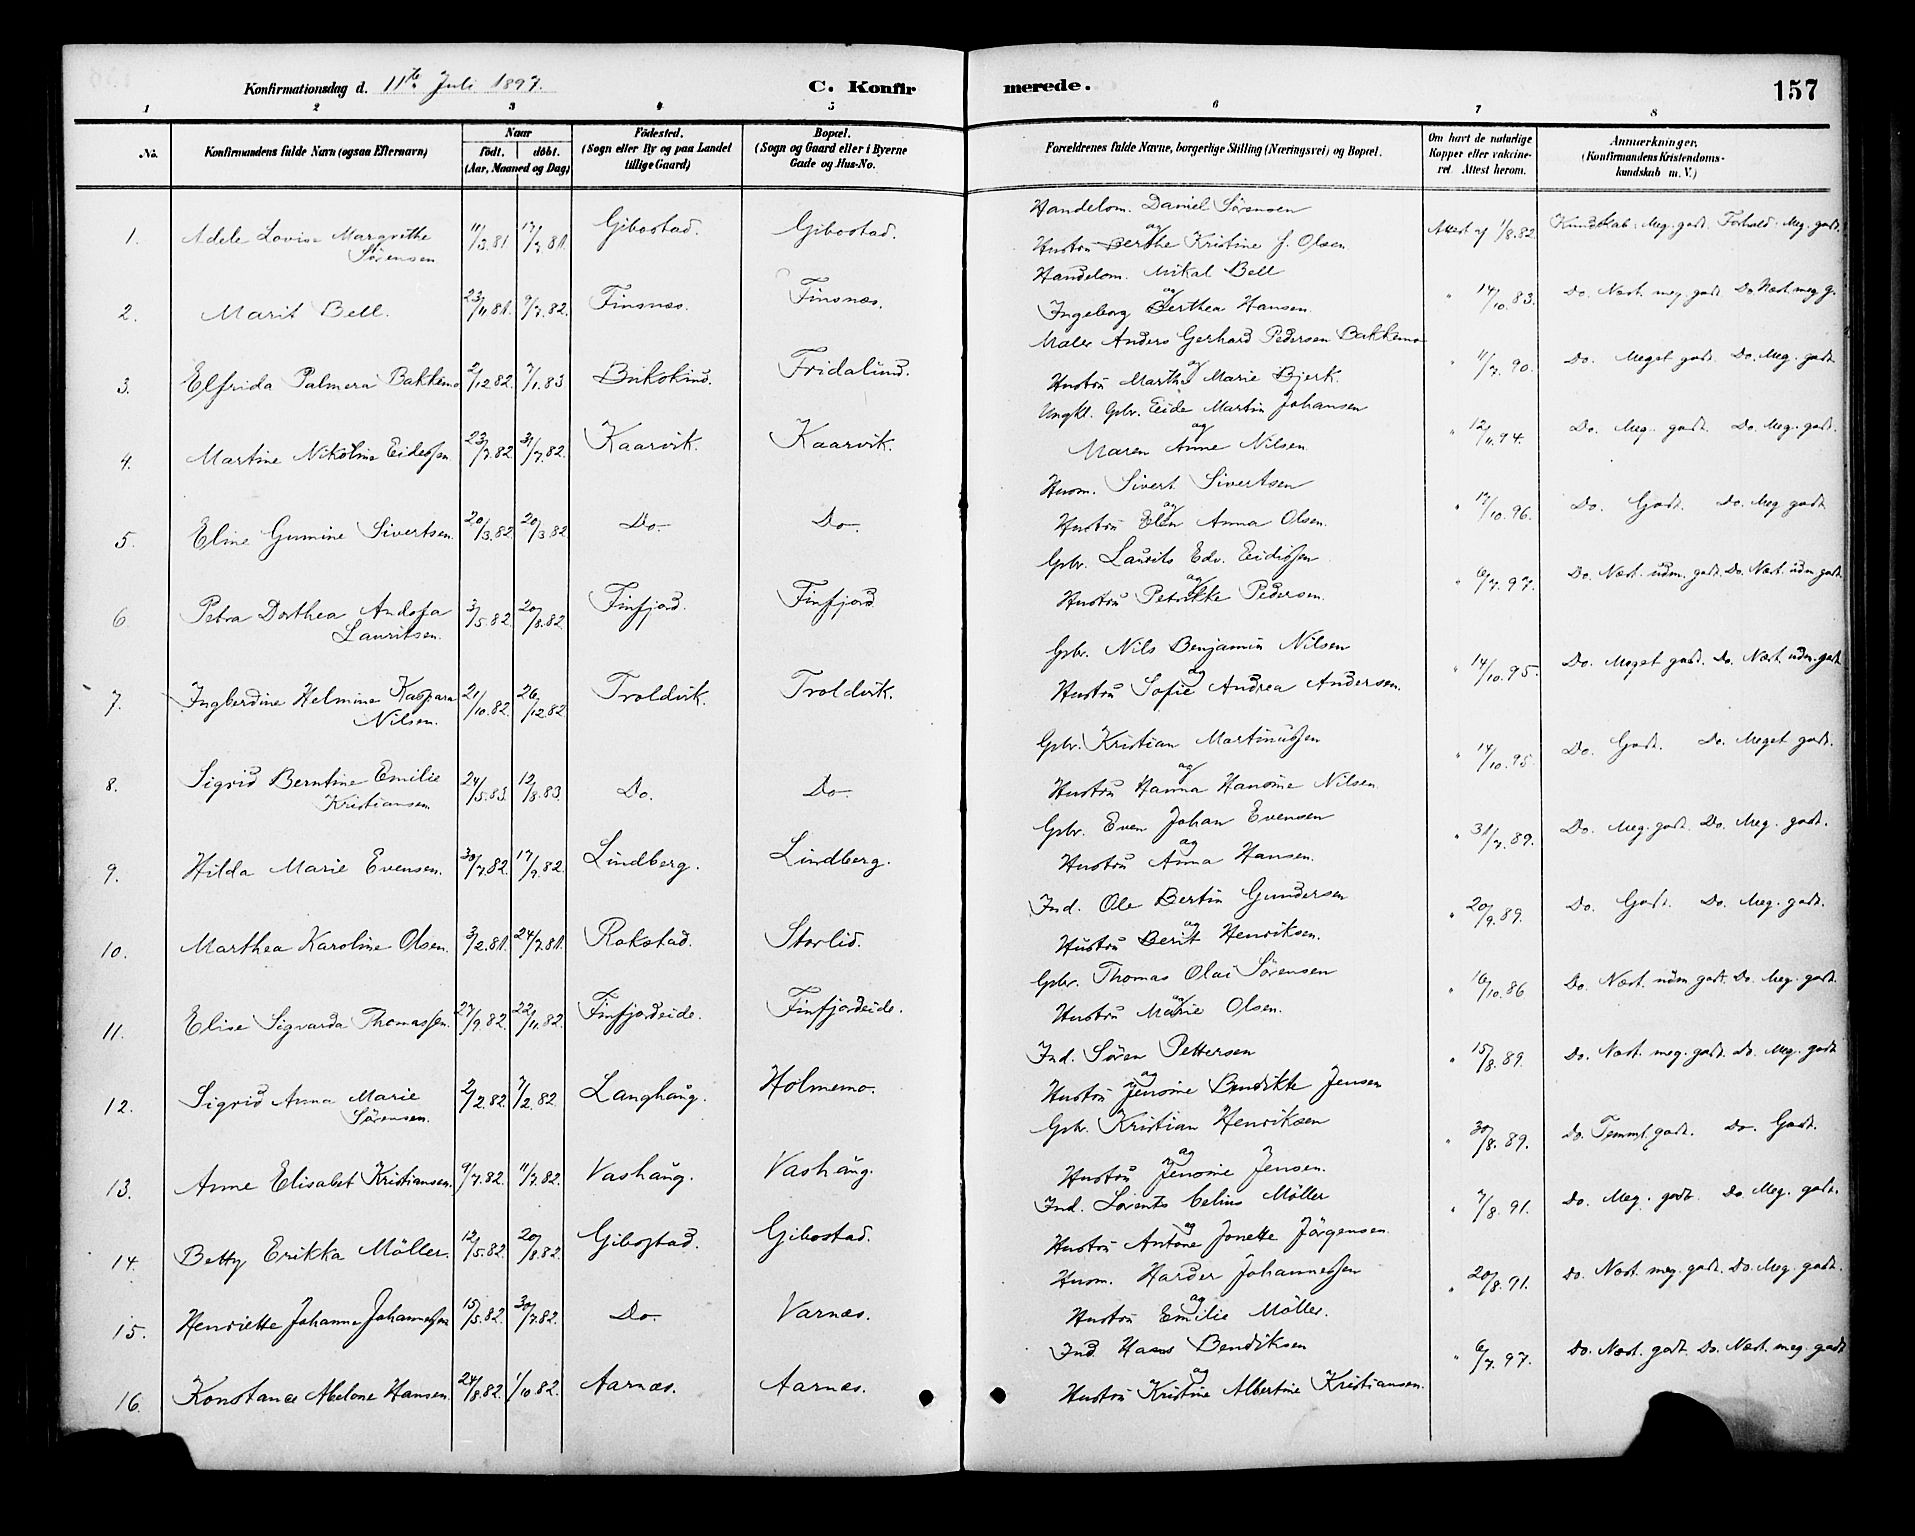 Konfirmationsdag d. 11te Juli 1897. C. Konfirmerede. 157
1 2 3 4 5 6 7 8
No. Konfirmandens fulde Navn (ogsaa Efternavn) Naar födt. döbt. (Aar, Maaned og Dag) Födested. (Sogn eller By og paa Landet tillige Gaard) Bopæl. (Sogn og Gaard eller i Byerne Gade og Hus-No. Forældrenes fulde Navne, borgerlige Stilling (Næringsvei) og Bopæl. Om havt de naturlige Kopper eller vakcineret. Attest herom. Anmærkninger. (Konfirmandens Kristendomskundskab m. V.)
1. Adele Lovise Margrethe Sörensen 11/3.81 17/7.81. Gibostad. Gibostad. Handelsm. Daniel Sörensen og Hustru Berthe Kristine f. Olsen Attest af 1/8.82 Kundskab: Meg. godt. Forhold: Meg. godt.
2. Marit Bell. 23/11.81. 9/7.82. Finsnæs. Finsnæs. Handelsm. Mikal Bell og Ingeborg Berthea Hansen " 14/10.83. Do. Næst. meg. godt. Do. Næst. meg. g.
3. Elfrida Palmera Bakkemo 2/12.82. 7/1.83 Bukskind. Fridalund. Maler Anders Gerhard Pedersen Bakkemo og Hustru Marthe Marie Bjerk. " 11/7.90. Do. Meget godt. Do. Meg. godt.
4. Martine Nikoline Eidessen 23/7.82. 31/7.82. Kaarvik. Kaarvik. Ungkl. Gbr. Eide Martin Johansen og Maren Anne Nilsen " 12/11.94. Do. Meg. godt. Do. Meg. godt.
5. Eline Gumine Sivertsen. 20/3.82 20/3.82 Do. Do. Husm. Sivert Sivertsen og Hustru Elen Anna Olsen. " 17/10.96. Do. Godt. Do. Meg. godt
6. Petra Dorthea Andofa Lauritsen. 3/5.82. 20/8.82. Finfjord. Finfjord Gbr. Laurits Edv. Eidissen og Hustru Petrikke Pedersen. " 6/7.97. Do. Næst. udm. godt. Do. Næst. udm. godt.
7. Ingberdine Helmine Kaspara Nilsen. 21/10.82. 26/12.82. Troldvik. Troldvik. Gbr. Nils Benjamin Nilsen og Hustru Sofie Andrea Andersen. " 14/10.95. Do. Meget godt. Do. Næst. udm. godt
8. Sigrid Berntine Emilie Kristiansen 24/5.83. 12/8.83. Do. Do. Gbr. Kristian Martinussen og Hustru Hanna Hansine Nilsen " 14/10.95. Do. Godt. Do. Meget godt.
9. Hilda Marie Evensen. 30/7.82. 17/9.82. Lindberg. Lindberg. Gbr. Even Johan Evensen og Hustru Anna Hansen. " 31/7.89. Do. Meg. godt. Do. Meg. godt.
10. Marthea Karoline Olsen. 3/2.81. 24/7.81. Rokstad. Storlid. Ind. Ole Bertin Gundersen og Hustru Berit Henriksen. " 20/9.89. Do. Godt. Do. Meg. godt.
11. Elise Sigvarda Thomassen. 27/9.82. 22/11.82. Finfjordeide. Finfjordeide. Gbr. Thomas Olai Sörensen og Hustru Marie Olsen. " 16/10.86 Do. Næst. udm. godt. Do. Meg. godt.
12. Sigrid Anna Marie Sörensen. 2/2.82. 7/2.82 Langhaug. Holmemo. Ind. Sören Pettersen og Hustru Jensine Bendikke Jensen " 15/8.89. Do. Næst. meg. godt. Do. Meg. godt
13. Anne Elisabet Kristiansen. 9/7.82. 11/7.82. Vashaug. Vashaug. Gbr. Kristian Henriksen og Hustru Jensine Jensen. " 30/8.89. Do. Temml. godt. Do. Godt.
14. Betty Erikka Möller. 12/5.82. 20/8.82. Gibostad. Gibostad. Ind. Lorents Celius Möller og Hustru Antone Jonette Jörgensen. " 7/8.91. Do. Meg. godt. Do. Meg. godt.
15. Henriette Johanna Johannessen 15/5.82. 30/7.82. Do. Varnæs. Husm. Harder Johannessen og Hustru Emilie Möller. " 20/8.91. Do. Næst. meg. godt. Do. Meg. godt.
16. Konstance Abelone Hansen. 24/8.82. 1/10.82. Aarnæs. Aarnæs. Ind. Hans Bendiksen og Hustru Kristine Albertine Kristiansen. " 6/7.97. Do. Næst. godt. Do. Næst. meg. godt